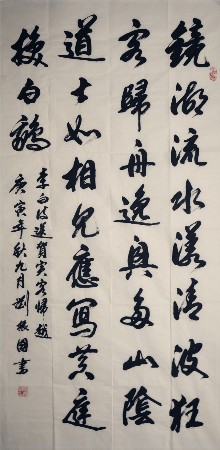 鏡湖流水漾清波狂
客歸舟逸興多山陰
道士如相見應寫黃庭
換白鵝
李白詩送賀賓客歸越
庚寅年秋九月劉國書